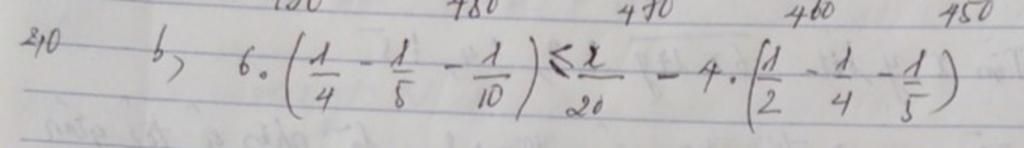 480 470 460 450
2,0 b, 6. (1/4 - 1/5 - 1/10) ≤ x/20 - 4. (1/2 - 1/4 - 1/5)